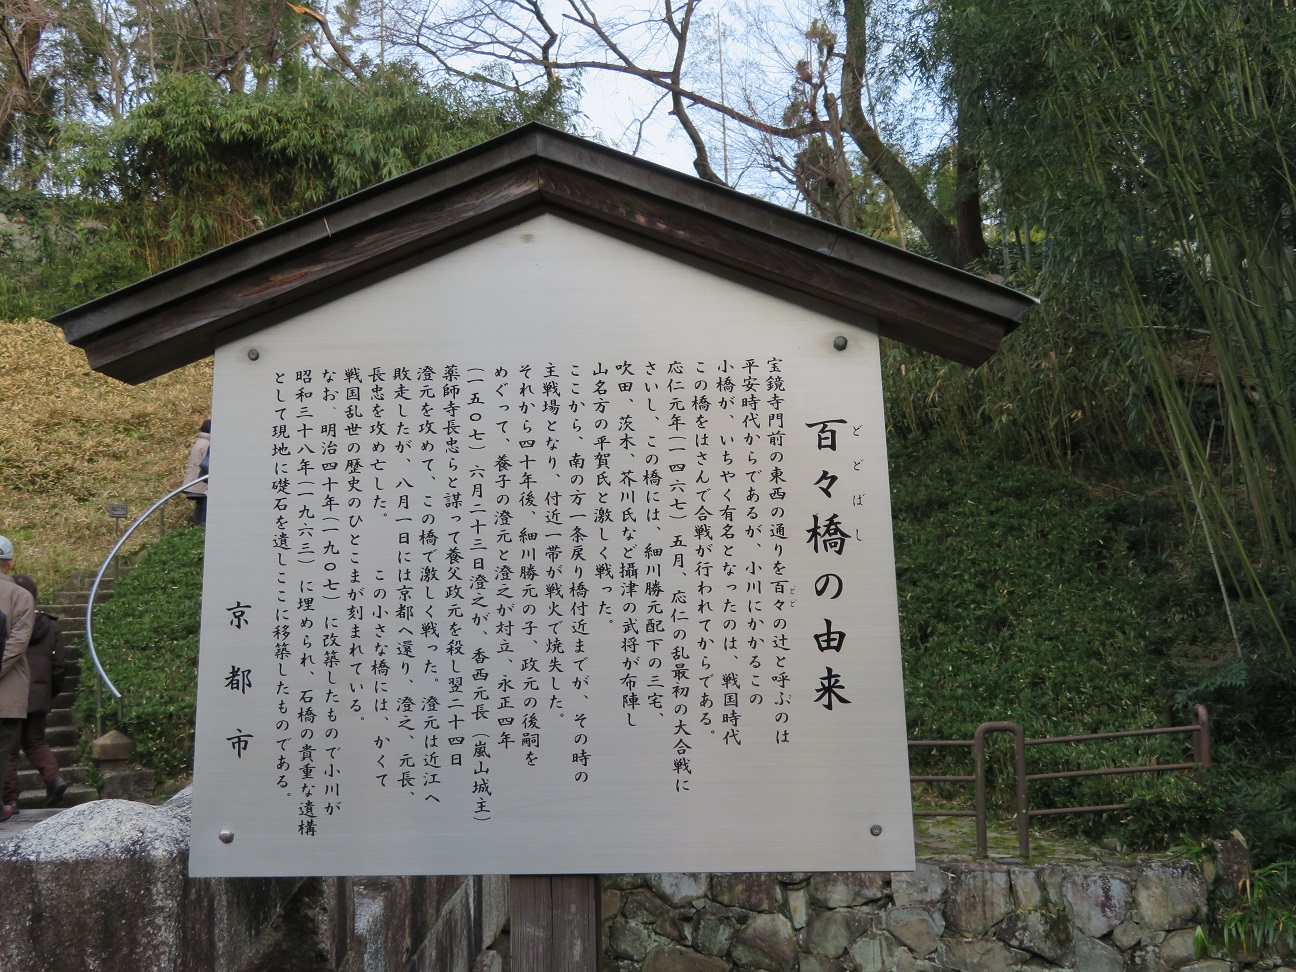 百々橋の由来
どどばし
宝鏡寺門前の東西の通りを百々の辻と呼ぶのは
どど
平安時代からであるが、小川にかかるこの
小橋が、いちやく有名となったのは、戦国時代
この橋をはさんで合戦が行われてからである。
応仁元年(一四六七)五月、応仁の乱最初の大合戦に
さいし、この橋には、細川勝元配下の三宅、
吹田、茨木、芥川氏など攝津の武将が布陣し
山名方の平賀氏と激しく戦った。
ここから、南の方一条戻り橋付近までが、その時の
主戦場となり、付近一帯が戦火で焼失した。
それから四十年後、細川勝元の子、政元の後嗣を
めぐって、養子の澄元と澄之が対立、永正四年
(一五〇七)六月二十三日澄之が、香西元長(嵐山城主)
薬師寺長忠らと謀って養父政元を殺し翌二十四日
澄元を攻めて、この橋で激しく戦った。澄元は近江へ
敗走したが、八月一日には京都へ還り、澄之、元長、
長忠を攻め亡した。　この小さな橋には、かくて
戦国乱世の歴史のひとこまが刻まれている。
なお、明治四十年(一九〇七)に改築したもので小川が
昭和三十八年(一九六三)に埋められ、石橋の貴重な遺構
として現地に礎石を遺しここに移築したものである。
京都市